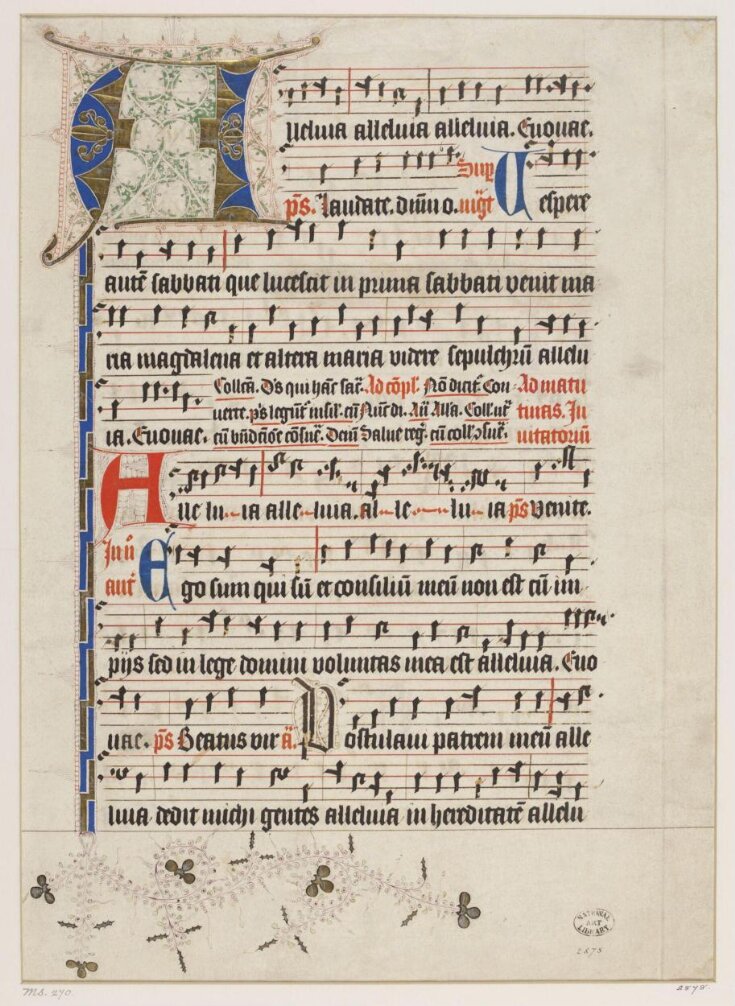 Alleluia alleluia alleluia. Euouae.
p̄s. Laudate. dn̄m o. Sup mḡt Uespere
autē sabbati que lucescit in prima sabbati venit ma
ria magdalena et altera maria videre sepulchrū allelu
ia. Euouae.
Collcā. Ds qui hanc sac̄. Ad cōpl. Nō dicit̄. Con
uerte. p̄s
Ad matu
tinas. In
uitatoriū
Alle lu ia alle luia. al le lu ia p̄s Venite.
In ū
ant̄
Ego sum qui sū et consiliū meū non est cū im
piis sed in lege domini voluntas mea est alleluia. Euo
uae. p̄s Beatus vir ā. Postulaui patrem meū alle
luia dedit michi gentes alleluia in hereditatē allelu
NATIONAL
ART
LIBRARY
2878
MS. 270.
2878.